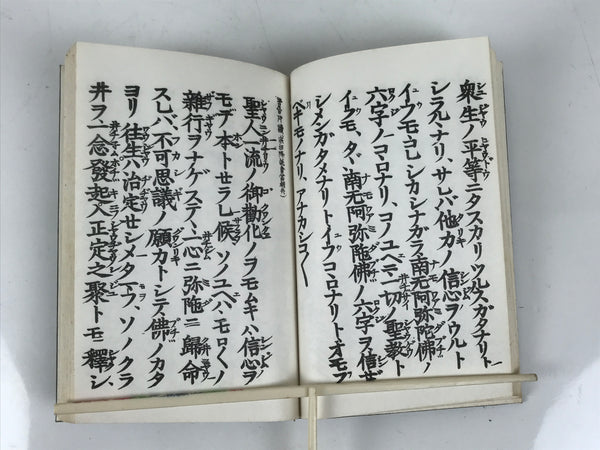 衆生ノ平等ニタスカリツルスガタナリト
シラルヽナリ、サレバ他力ノ信心ヲウルト
イフモコレシカシナガラ南无阿弥陀佛ノ
六字ノコヽロナリ、コノユヘニ一切ノ聖教ト
イフモ、タヾ南无阿弥陀佛ノ六字ヲ信ゼ
シメンガタメナリトイフコヽロナリトオモフ
ベキモノナリ、アナカシコ〱
聖人一流ノ御勸化ノヲモムキハ信心ヲ
モテ本トセラレ候ソノユヘハ、モロ〱ノ
雜行ヲナゲステヽ一心ニ弥陀ニ歸命
スレバ、不可思議ノ願力トシテ佛ノカタ
ヨリ往生ハ治定セシメタマフ、ソノクラ
井ヲ一念發起入正定之聚トモ釋シ